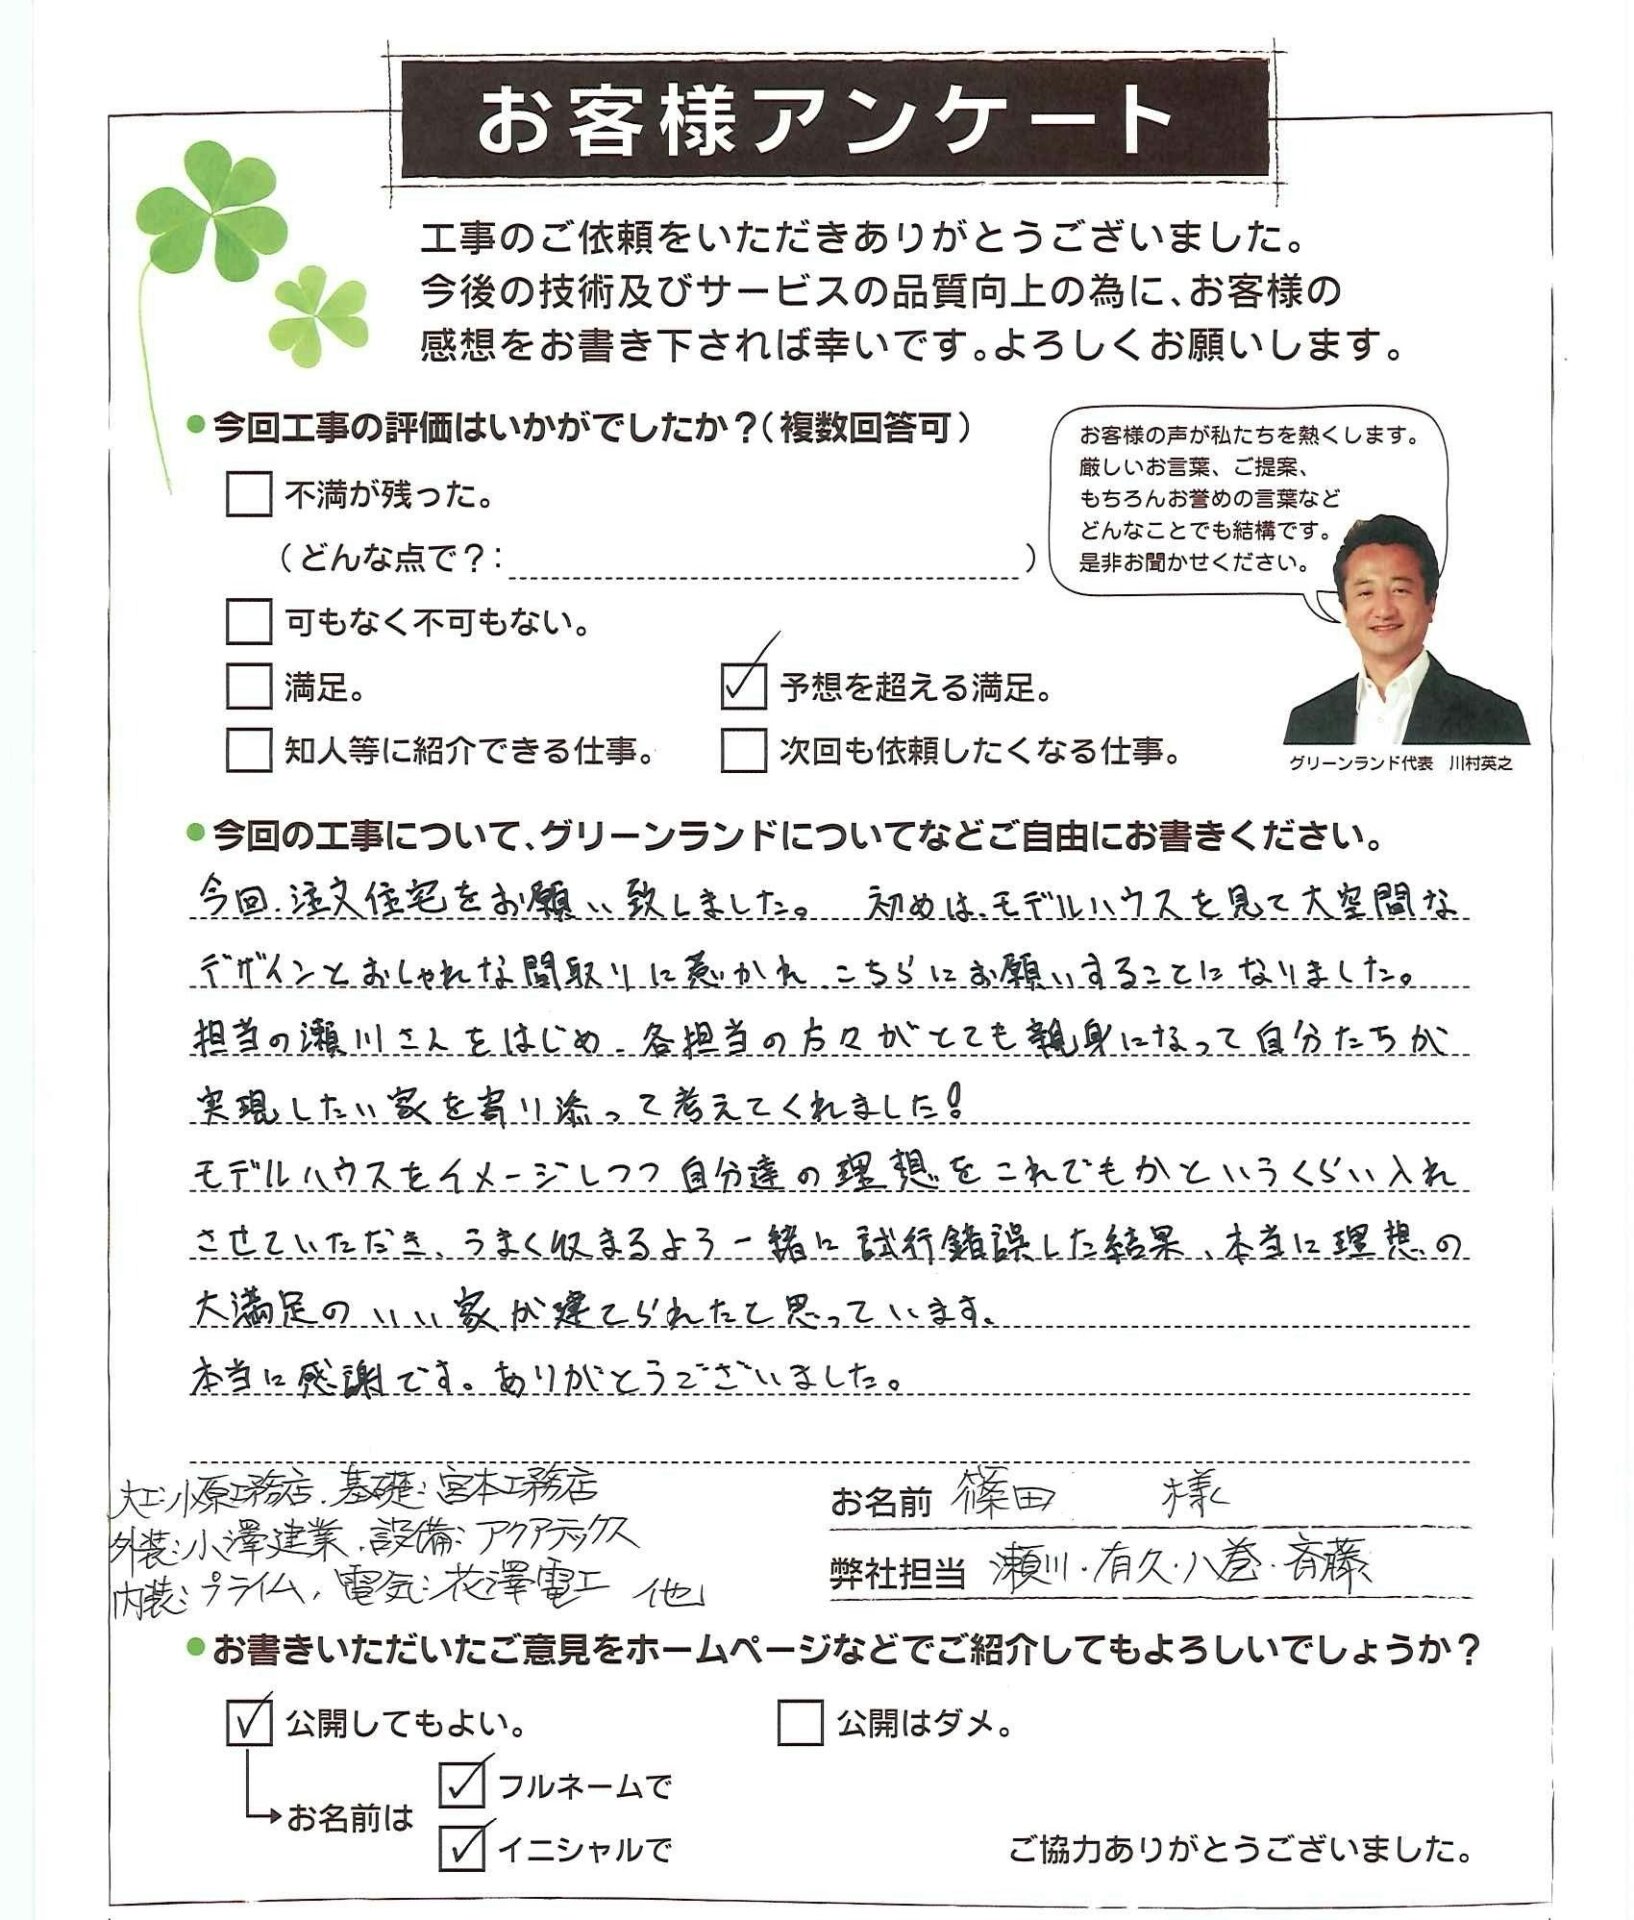 お客様アンケート
工事のご依頼をいただきありがとうございました。
今後の技術及びサービスの品質向上の為に、お客様の
感想をお書き下されば幸いです。よろしくお願いします。
●今回工事の評価はいかがでしたか？（複数回答可）
お客様の声が私たちを熱くします。
厳しいお言葉、ご提案、
もちろんお誉めの言葉など
どんなことでも結構です。
是非お聞かせください。
□ 不満が残った。
（どんな点で？： ）
□ 可もなく不可もない。
□ 満足。 ☑ 予想を超える満足。
□ 知人等に紹介できる仕事。 □ 次回も依頼したくなる仕事。
グリーンランド代表 川村英之
●今回の工事について、グリーンランドについてなどご自由にお書きください。
今回、注文住宅をお願い致しました。 初めは、モデルハウスを見て大空間な
デザインとおしゃれな間取りに惹かれ、こちらにお願いすることになりました。
担当の瀬川さんをはじめ、各担当の方々がとても親身になって自分たちが
実現したい家を寄り添って考えてくれました!
モデルハウスをイメージしつつ自分達の理想をこれでもかというくらい入れ
させていただき、うまく収まるよう一緒に試行錯誤した結果、本当に理想の
大満足のいい家が建てられたと思っています。
本当に感謝です。ありがとうございました。
大工:小原工務店、基礎:宮本工務店
外装:小澤建業、設備:アクアテックス
内装:プライム、電気:花澤電工 他
お名前 篠田 様
弊社担当 瀬川・有久・八巻・斉藤
●お書きいただいたご意見をホームページなどでご紹介してもよろしいでしょうか？
☑ 公開してもよい。 □ 公開はダメ。
お名前は ☑ フルネームで
☑ イニシャルで
ご協力ありがとうございました。